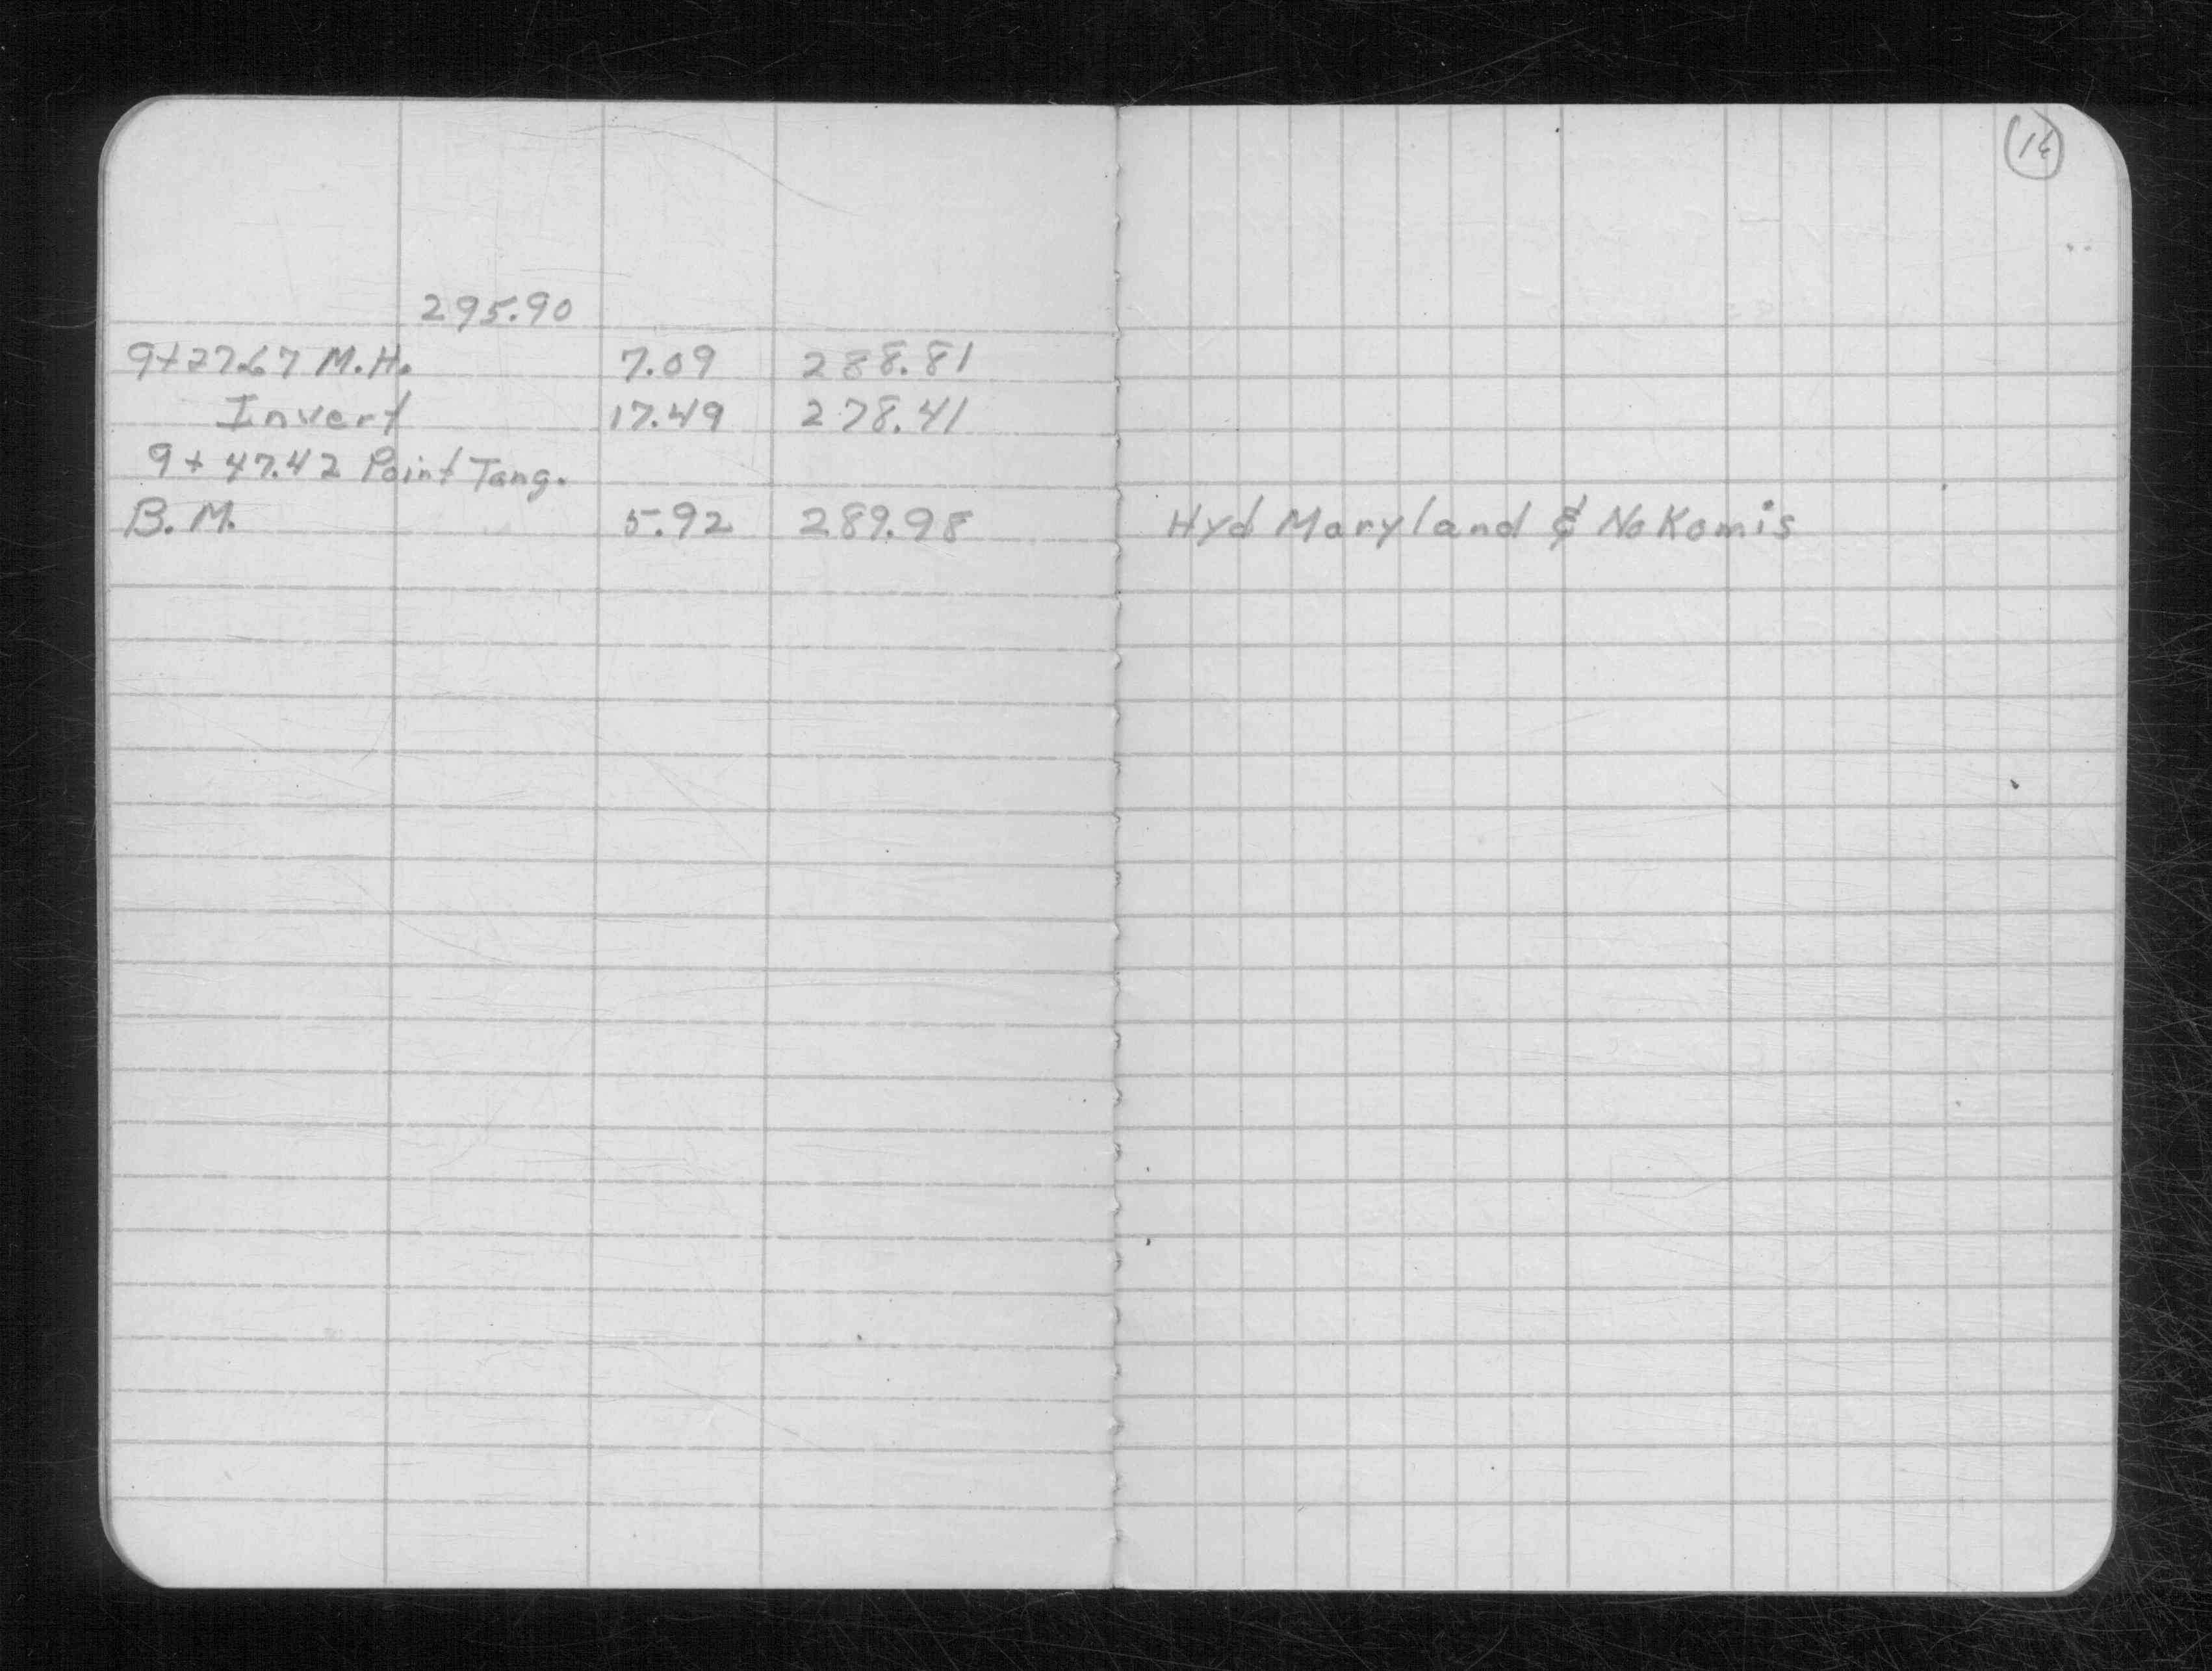 295.90
9+27.67 M.H. 7.09 288.81
Invert 17.49 278.41
9+47.42 Point Tang.
B.M. 5.92 289.98 Hyd Maryland & NoKomis